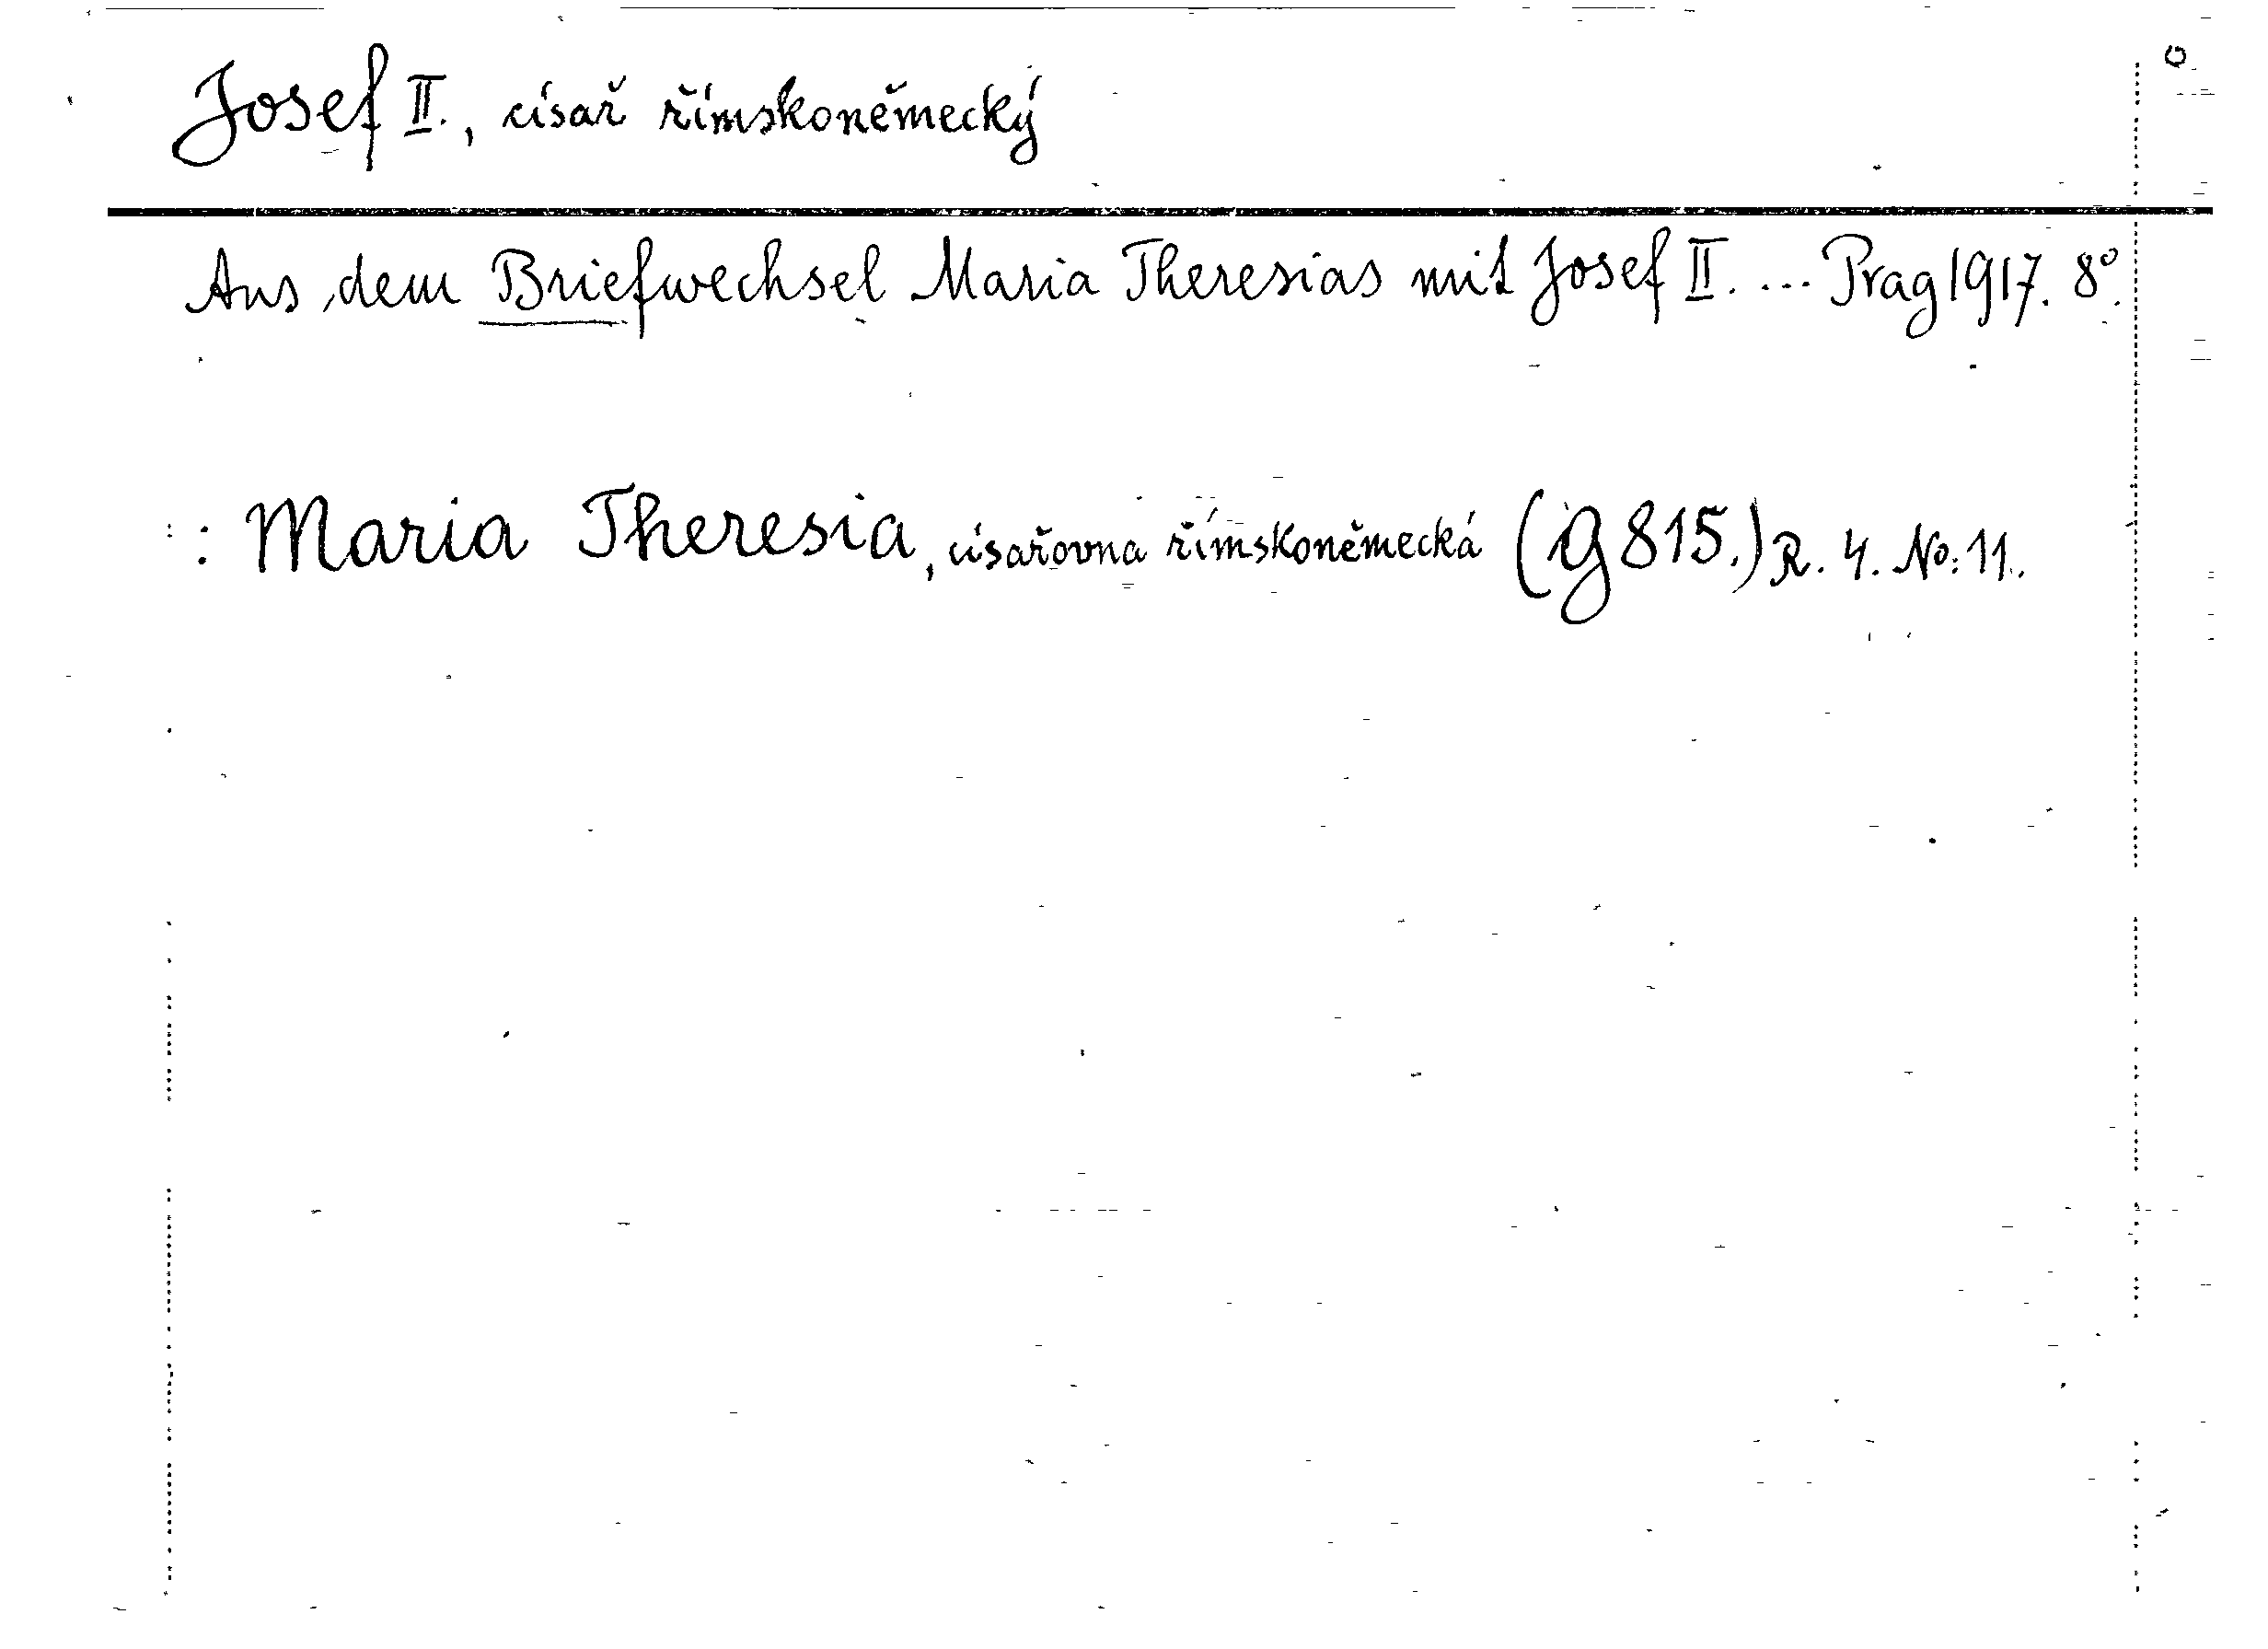 Josef II., císař římskoněmecký
Aus dem Briefwechsel Maria Theresias mit Josef II. ... Prag 1917. 8°.
: Maria Theresia, císařovna římskoněmecká (g 815.) R. 4. No: 11.